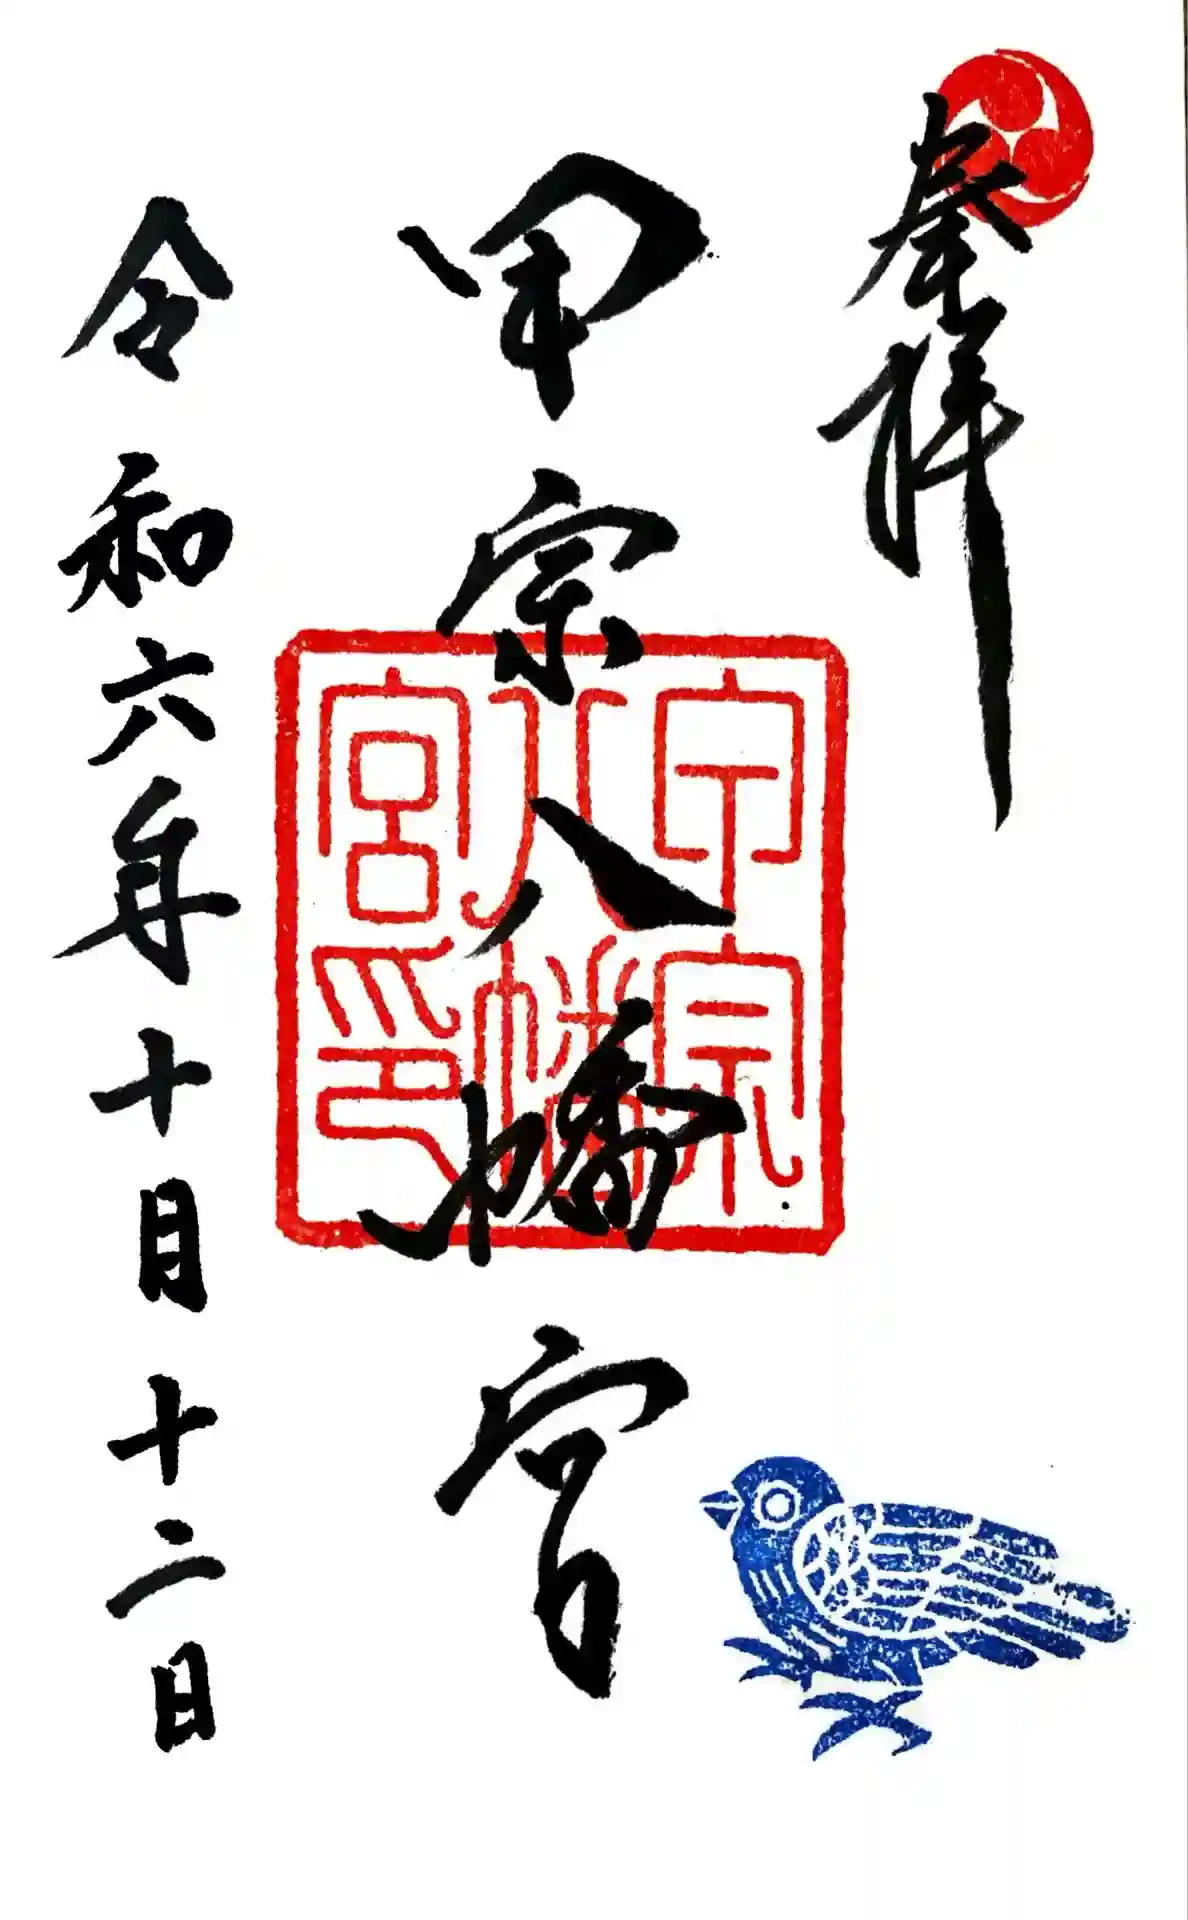 奉拝
甲宗八幡宮
甲宗八幡宮印
令和六年十月十二日